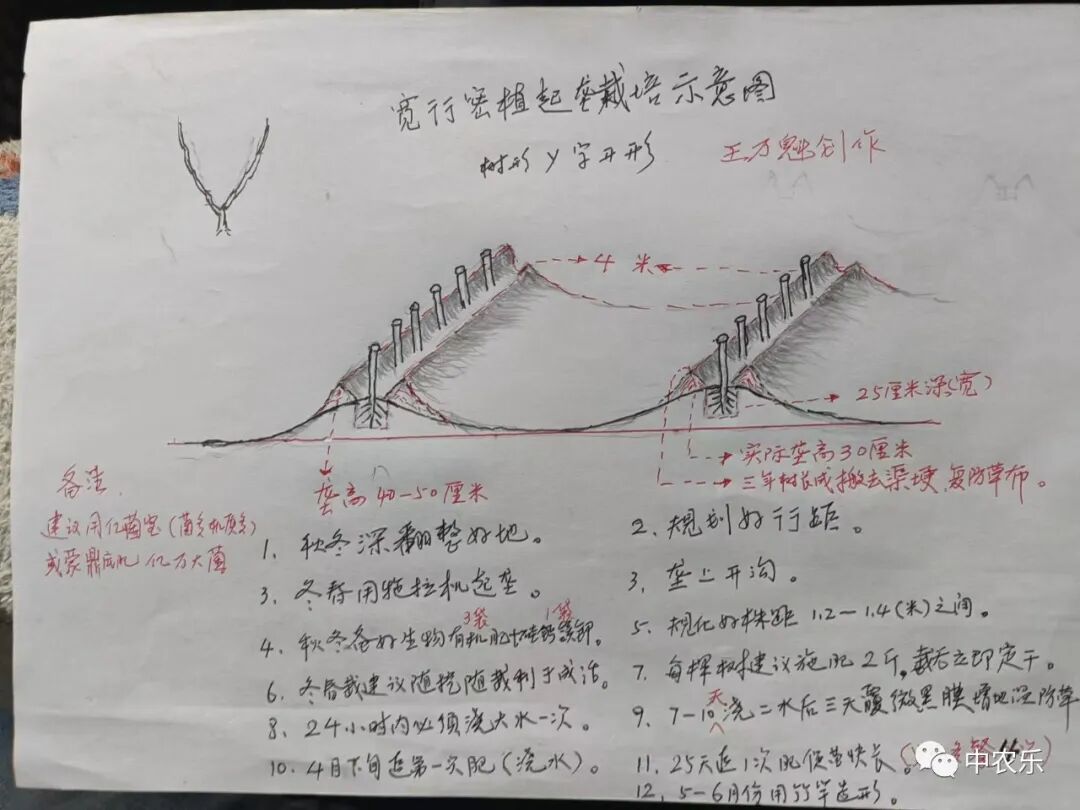 宽行密植起垄栽培示意图
树形 y 字开形
王万魁创作
4 米
25厘米深(宽)
实际垄高30厘米
三年树长成撤去渠埂,复防草布。
垄高40-50厘米
备注
建议用亿菌宝(菌多机质多)
或蒙鼎底肥 亿万大菌
1、秋冬深翻整好地。
2、规划好行距。
3、冬春用拖拉机起垄。
3、垄上开沟。
3袋 1袋
4、秋冬备好生物有机肥+硅钙镁钾。
5、规化好株距 1.2-1.4(米)之间。
6、冬春栽建议随挖随栽利于成活。
7、每棵树建议施肥2斤,栽后立即定干。
8、24小时内必须浇大水一次。
9、7-10天浇二水后三天覆微黑膜增地温防草
10、4月下旬追第一次肥(浇水)。
11、25天追1次肥促苗快长。
12、5-6月份用竹竿造形。
中农乐